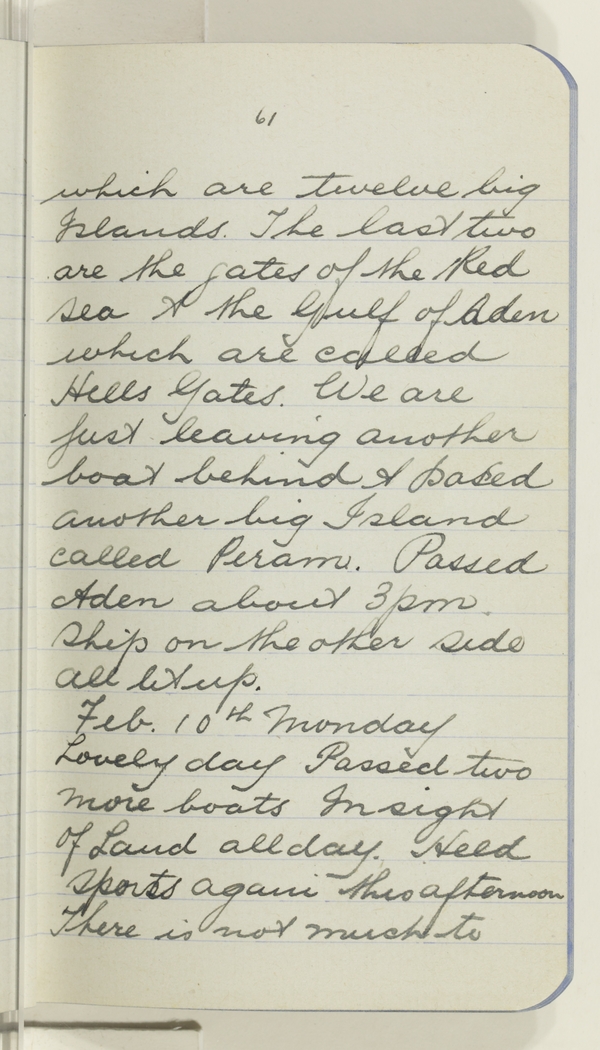 61
which are twelve big
Islands. The last two
are the gates of the Red
Sea & the Gulf of Aden
which are called
Hells Gates. We are
just leaving another
boat behind & passed
another big Island
called Peram. Passed
Aden about 3pm.
Ship on the other side
all lit up.
Feb. 10th Monday
Lovely day Passed two
more boats In sight
of Land all day. Held
sports again this afternoon
There is not much to